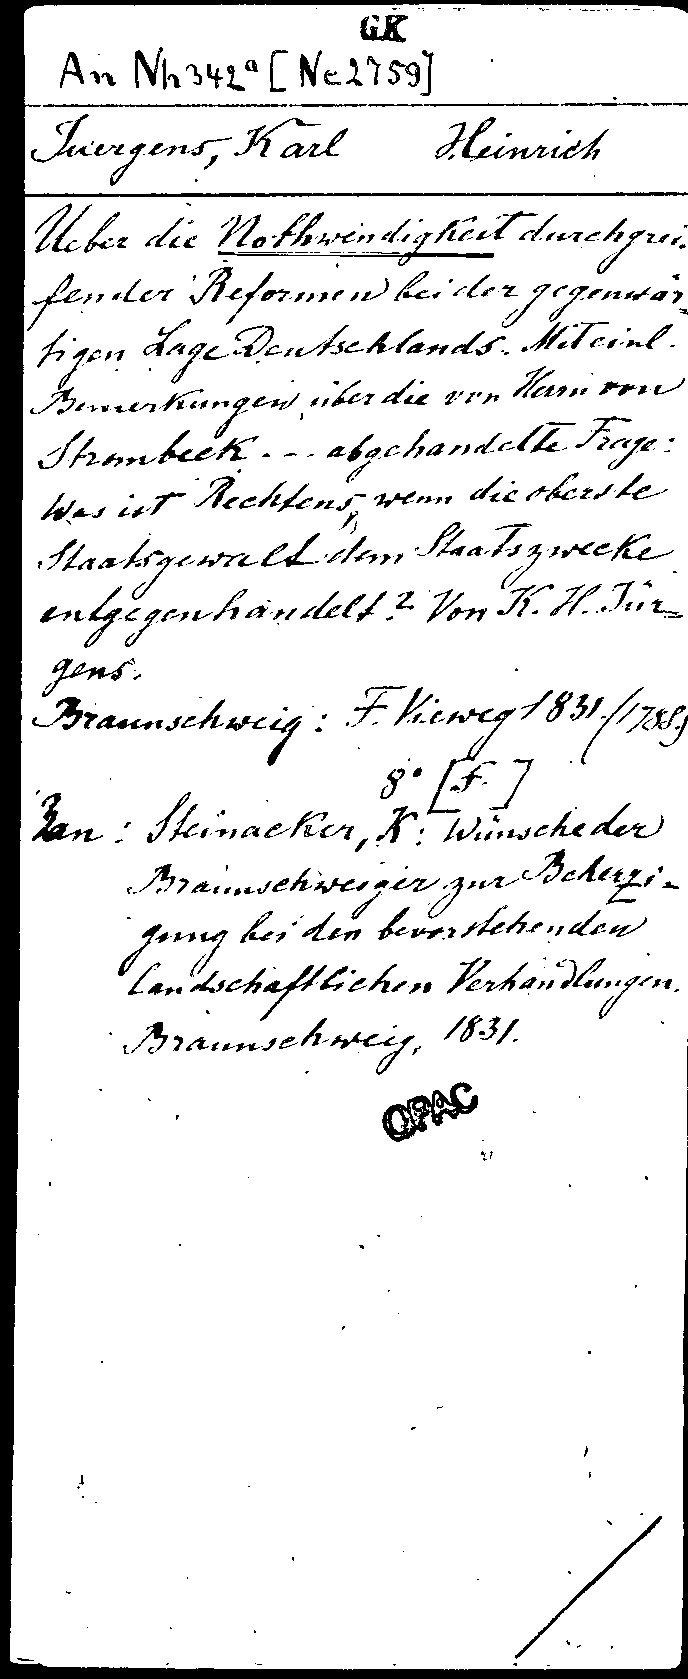 GK
An Nh 342ª [Ne 2759]
Juergens, Karl Heinrich
Ueber die Nothwendigkeit durchgrei-
fender Reformen bei der gegenwär-
tigen Lage Deutschlands. Mit einl.
Bemerkungen über die von Herrn von
Strombeck ... abgehandelte Frage:
Was ist Rechtens, wenn die oberste
Staatsgewalt dem Staatszwecke
entgegenhandelt? Von K. H. Jür-
gens.
Braunschweig: F. Vieweg 1831. (178 S.)
8° [F.]
3 an: Steinacker, K: Wünsche der
Braunschweiger zur Beherzi-
gung bei den bevorstehenden
landschaftlichen Verhandlungen.
Braunschweig, 1831.
OPAC